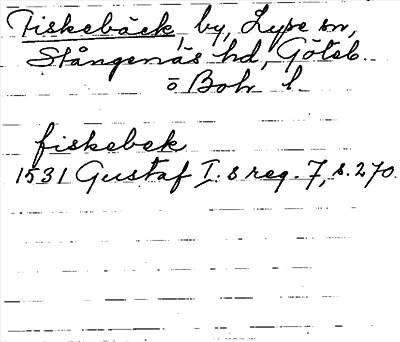 Fiskebäck, by, Lyse sn,
Stångenäs hd, Göteb.
o Boh l.
fiskebek
1531 Gustaf I:s reg. 7, s. 270.